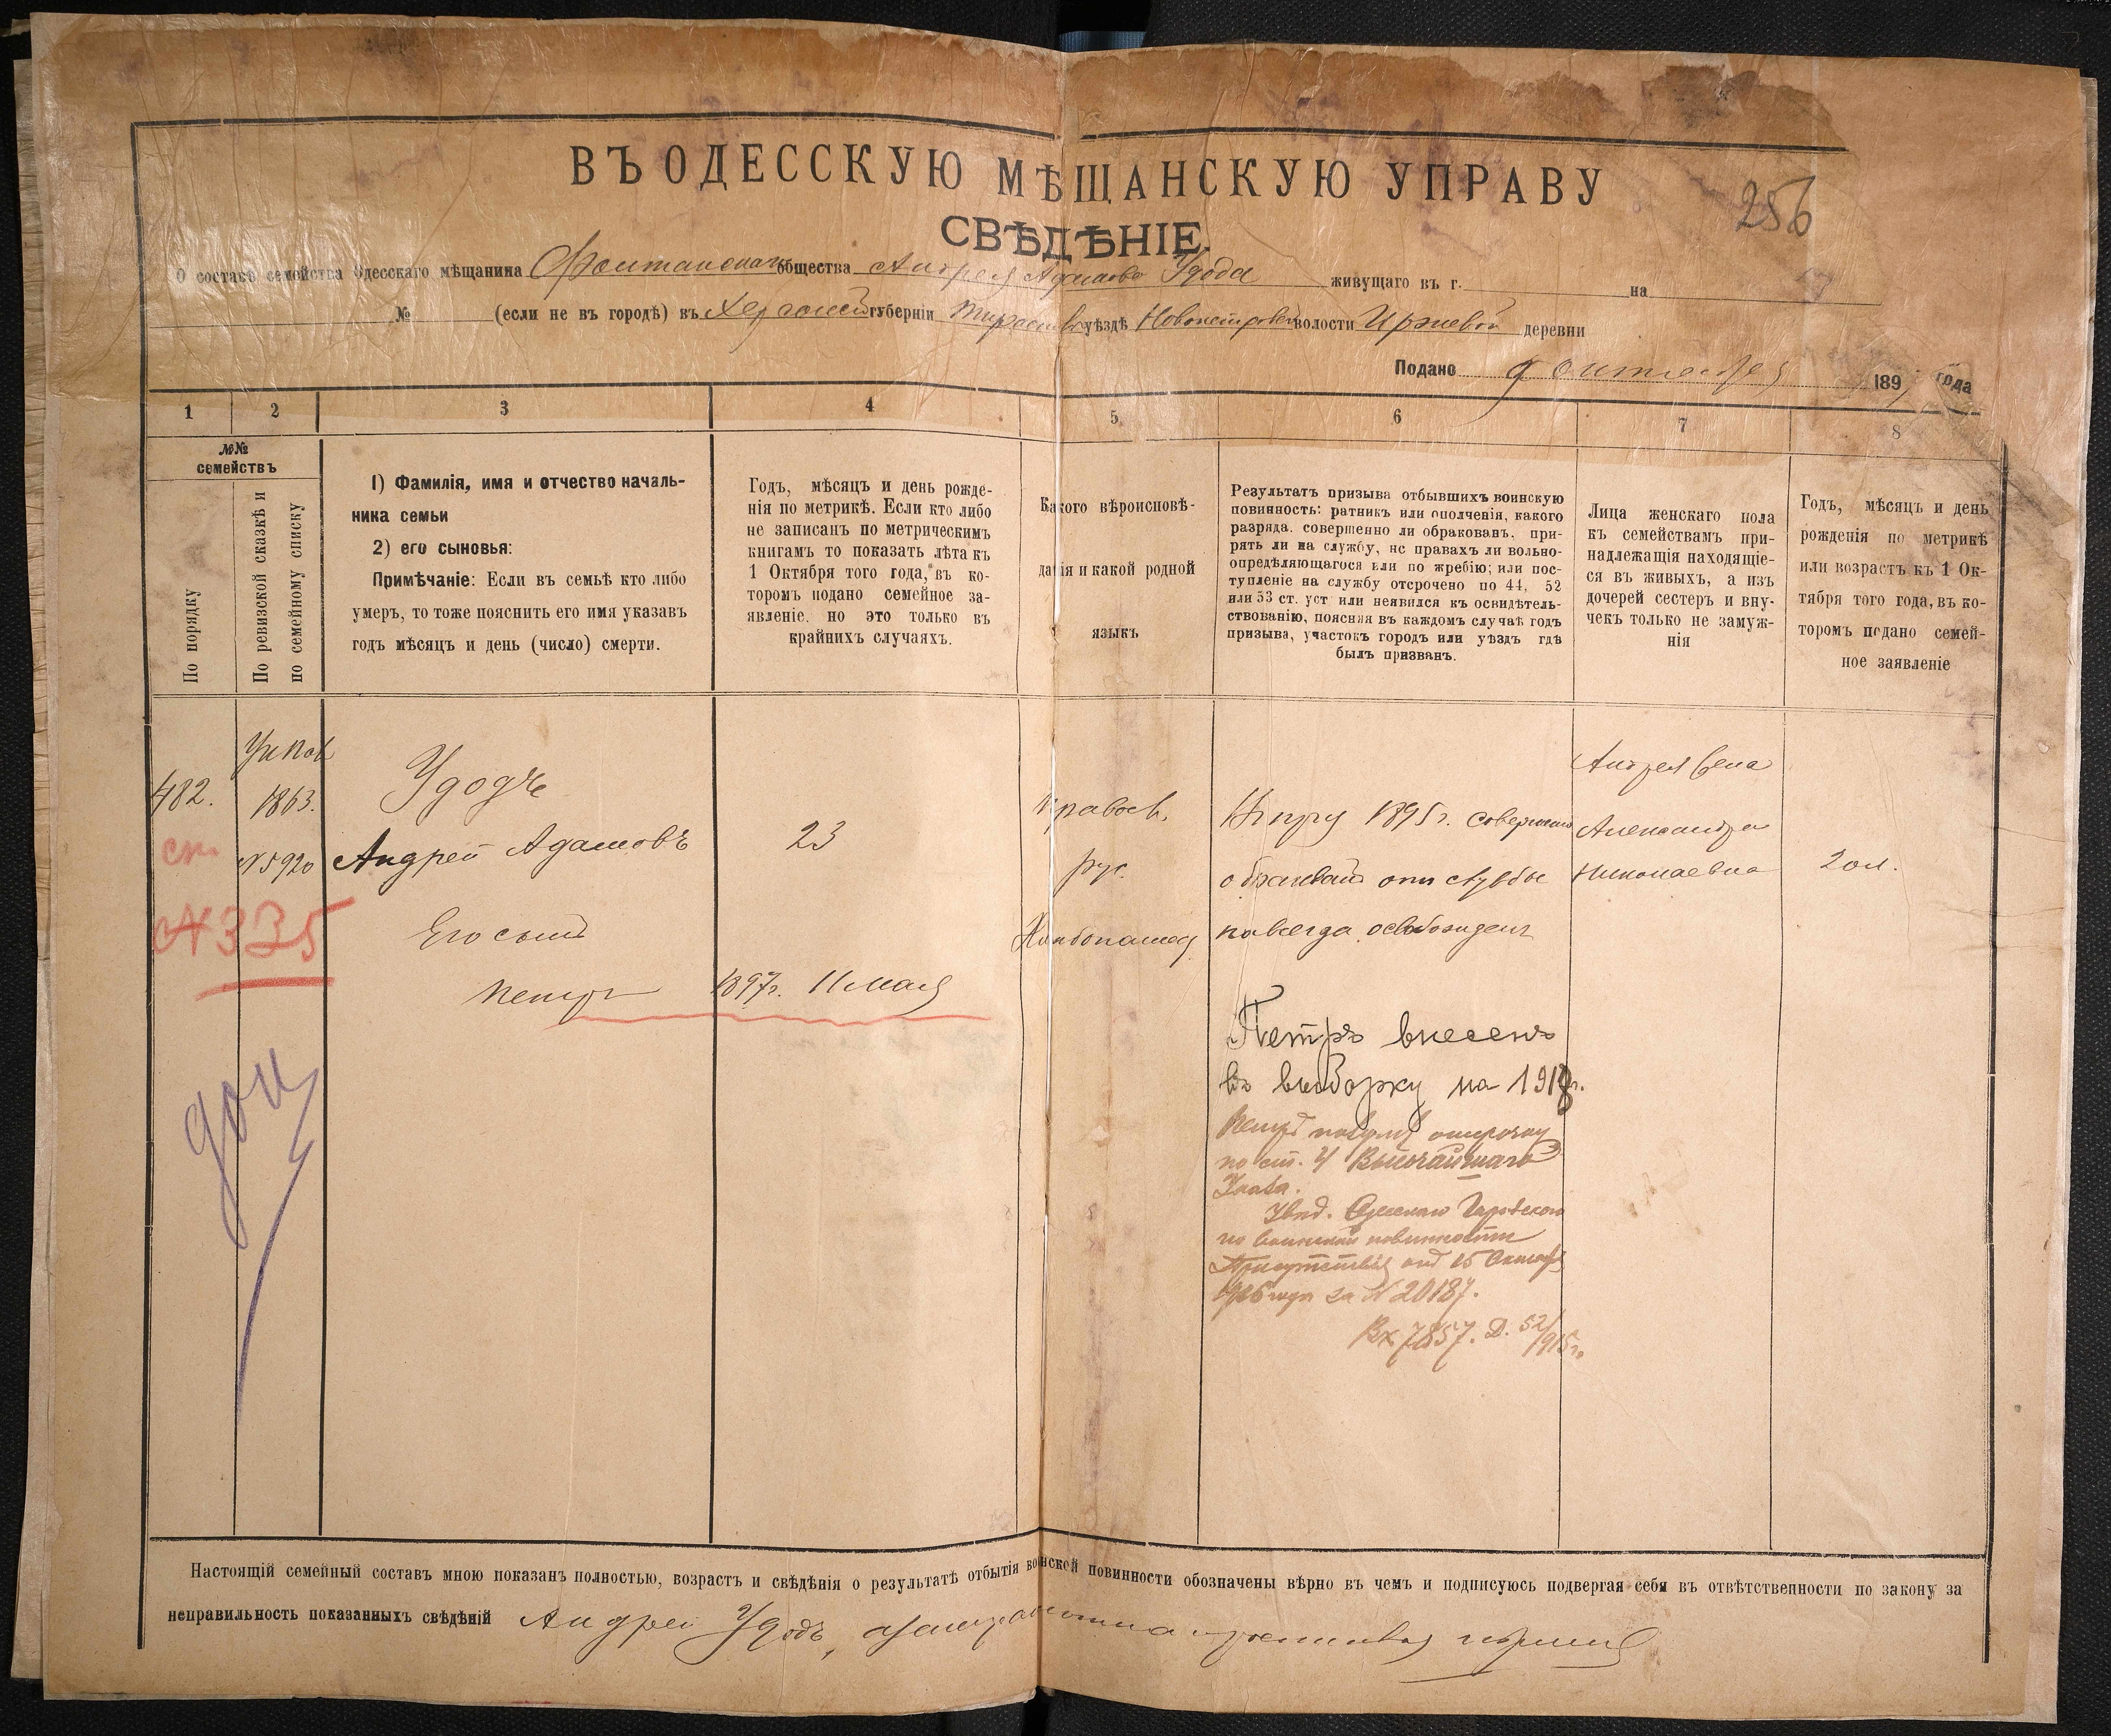 ВЪ ОДЕССКУЮ МѢЩАНСКУЮ УПРАВУ
256
СВѢДѢНІЕ.
О составѣ семейства Одесскаго мѣщанина общества Андрея Адамова Удода живущаго въ г. на
№ (если не въ городѣ) въ губерніи уѣздѣ волости деревни
Подано 9 октября 1897 года
1 2 3 4 5 6 7 8
№№
семействъ
По порядку
По ревизской сказкѣ и
по семейному списку
1) Фамилія, имя и отчество началь-
ника семьи
2) его сыновья:
Примѣчаніе: Если въ семьѣ кто либо
умеръ, то тоже пояснить его имя указавъ
годъ мѣсяцъ и день (число) смерти.
Годъ, мѣсяцъ и день рожде-
нія по метрикѣ. Если кто либо
не записанъ по метрическимъ
книгамъ то показать лѣта къ
1 Октября того года, въ ко-
торомъ подано семейное за-
явленіе, но это только въ
крайнихъ случаяхъ.
Какого вѣроисповѣ-
данія и какой родной
языкъ
Результатъ призыва отбывшихъ воинскую
повинность: ратникъ или ополченія, какого
разряда, совершенно ли обракованъ, при-
рять ли на службу, нс правахъ ли вольно-
опредѣляющагося или по жребію; или пос-
тупленіе на службу отсрочено по 44, 52
или 53 ст. уст или неявился къ освидѣтель-
ствованію, поясняя въ каждомъ случаѣ годъ
призыва, участокъ городъ или уѣздъ гдѣ
былъ призванъ.
Лица женскаго пола
къ семействамъ при-
надлежащія находящіе-
ся въ живыхъ, а изъ
дочерей сестеръ и вну-
чекъ только не замуж-
нія
Годъ, мѣсяцъ и день
рожденія по метрикѣ
или возрастъ къ 1 Ок-
тября того года, въ ко-
торомъ подано семей-
ное заявленіе
482.
1863.
№ 5920
сп.
№ 335
Удодъ
Андрей Адамовъ
23
Его сынъ
Петръ 1897г. 11 мая
Правосл.
рус.
Хлѣбопашец
1895 г. совершено
обракованъ отъ службы
навсегда освобожденъ
Андрея жена
Александра
Николаевна
20 л.
Петръ внесенъ
въ выборку на 1918г.
Петръ получ. отсрочку
по ст. 4 Высочайшаго
Указа.
Увѣд. Одесскаго Городского
по воинской повинности
Присутствія отъ 15 Октяб.
1916 года за № 20187.
Вх 7857. Д. 52/1915г.
Настоящій семейный составъ мною показанъ полностью, возрастъ и свѣдѣнія о результатѣ отбытія воинской повинности обозначены вѣрно въ чемъ и подписуюсь подвергая себя въ отвѣтственности по закону за
неправильность показанныхъ свѣдѣній Андрей Удодъ,